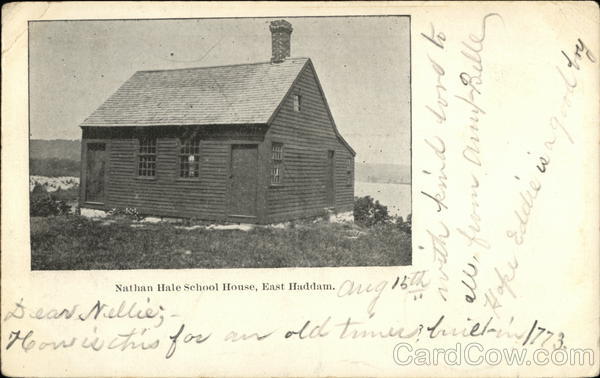 Nathan Hale School House, East Haddam.
Aug 15th
Dear Nellie;-
How is this for an old timer? built in 1773.
with kind love to
all, from Aunt Belle
Hope Eddie is a good boy
CardCow.com